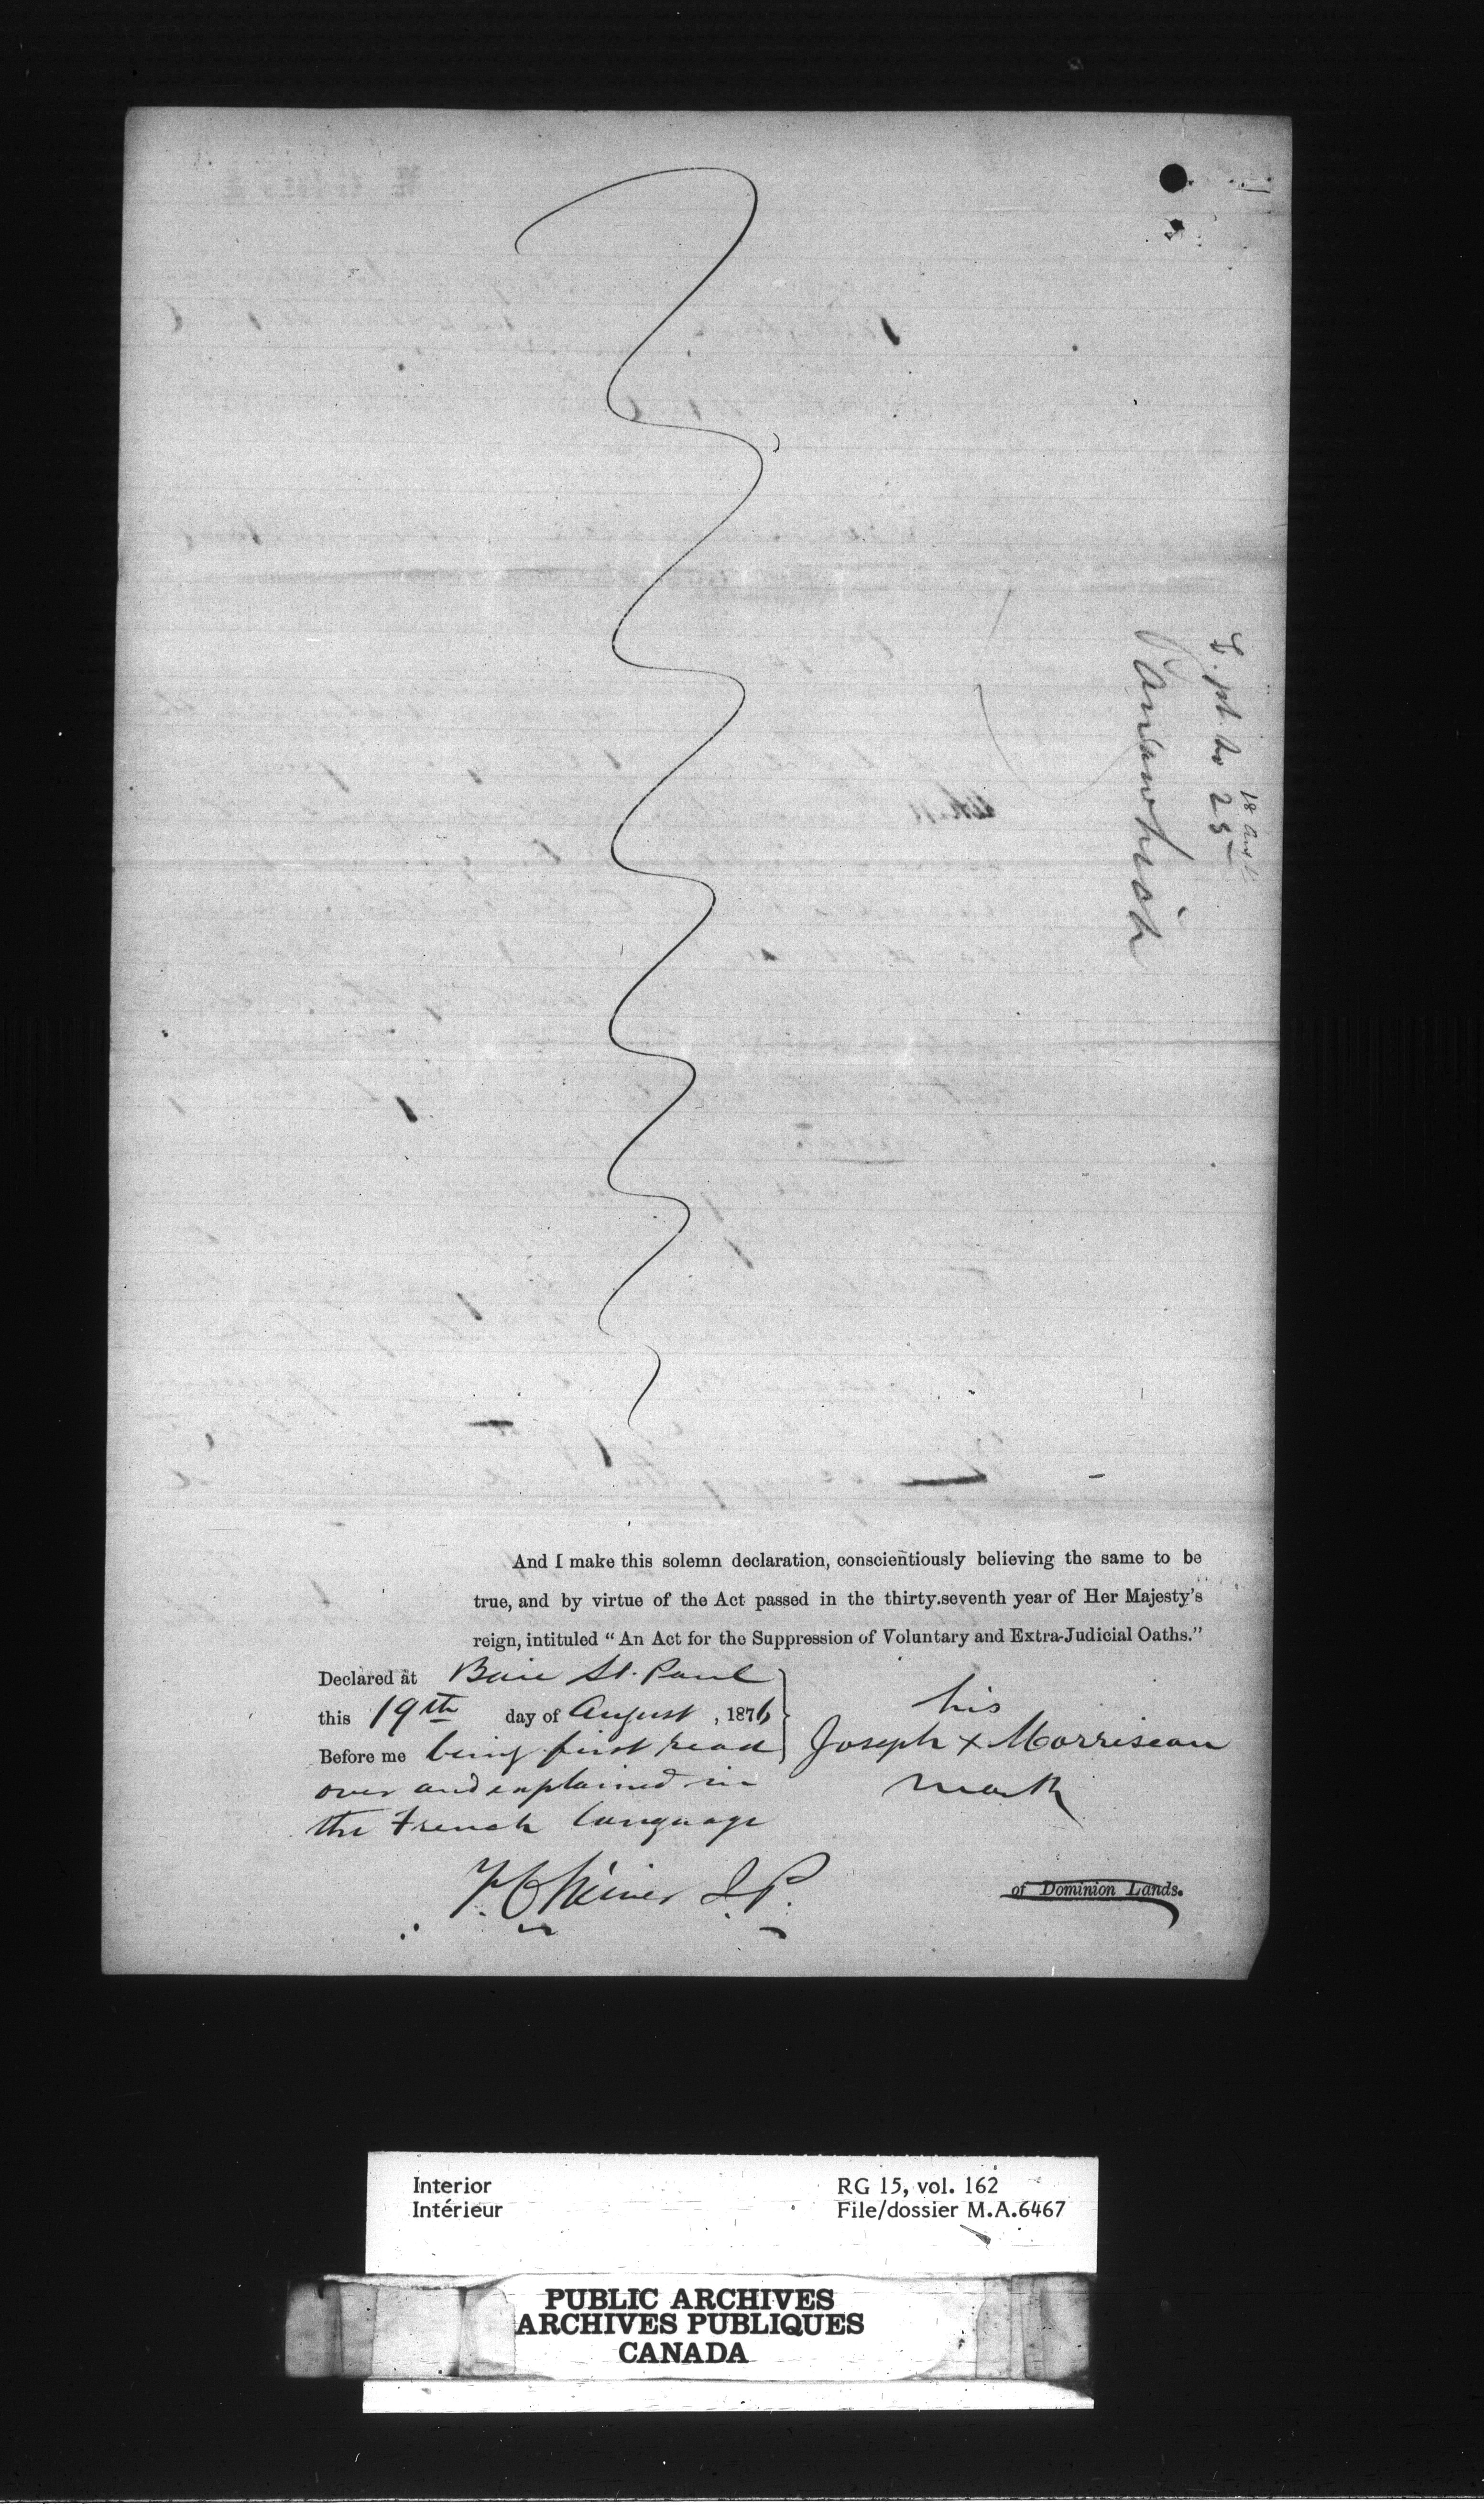 18
25
And I make this solemn declaration, conscientiously believing the same to be
true, and by virtue of the Act passed in the thirty-seventh year of Her Majesty's
reign, intituled "An Act for the Suppression of Voluntary and Extra-Judicial Oaths."
Declared at Baie St. Paul
this 19th day of August, 1876
Before me being first read
over and explained in
the French language
his
Joseph x Morriseau
mark
J.P.
of Dominion Lands.
Interior
Intérieur
RG 15, vol. 162
File/dossier M.A.6467
PUBLIC ARCHIVES
ARCHIVES PUBLIQUES
CANADA